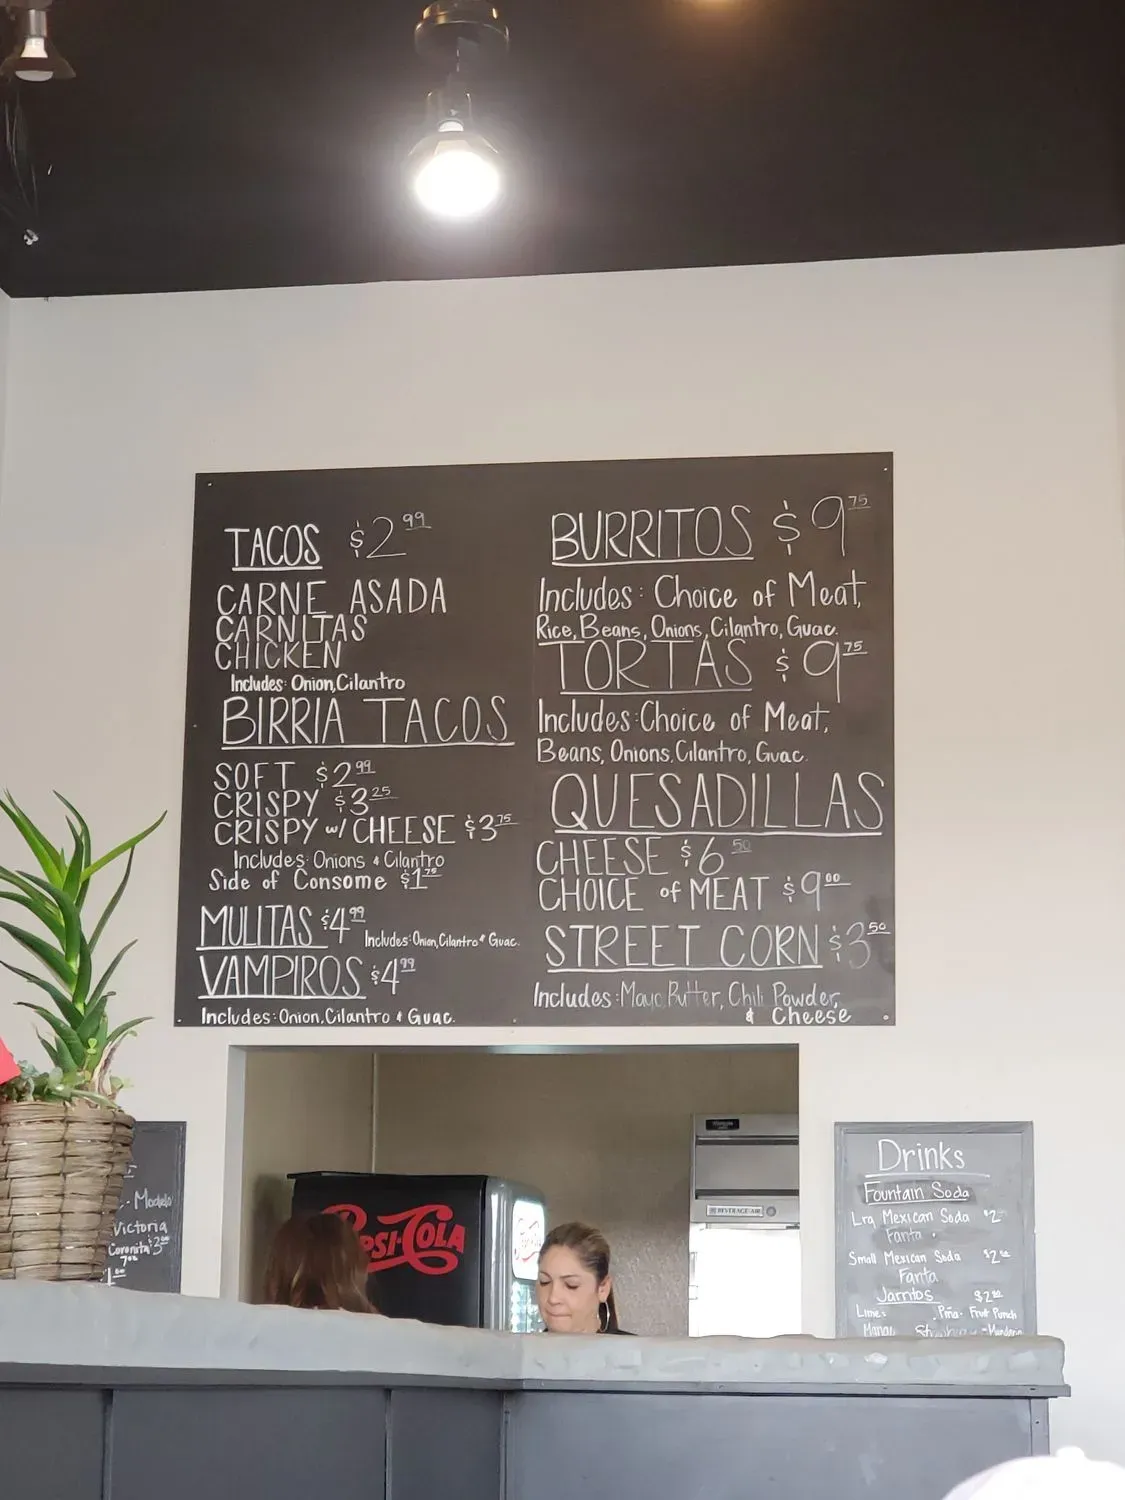 TACOS $2.99
CARNE ASADA
CARNITAS
CHICKEN
Includes: Onion, Cilantro
BIRRIA TACOS
SOFT $2.99
CRISPY $3.25
CRISPY w/ CHEESE $3.75
Includes: Onions & Cilantro
Side of Consome $1.75
MULITAS $4.99 Includes: Onion, Cilantro & Guac.
VAMPIROS $4.99
Includes: Onion, Cilantro & Guac.
BURRITOS $9.75
Includes: Choice of Meat,
Rice, Beans, Onions, Cilantro, Guac.
TORTAS $9.75
Includes: Choice of Meat,
Beans, Onions, Cilantro, Guac.
QUESADILLAS
CHEESE $6.50
CHOICE of MEAT $9.00
STREET CORN $3.50
Includes: Mayo, Butter, Chili Powder,
& Cheese
Modelo
Victoria
Coronita $3
7oz
PEPSI-COLA
BEVERAGE-AIR
Drinks
Fountain Soda
Lrg Mexican Soda
Fanta
Small Mexican Soda
Fanta
Jarritos
Lime Piña Fruit Punch